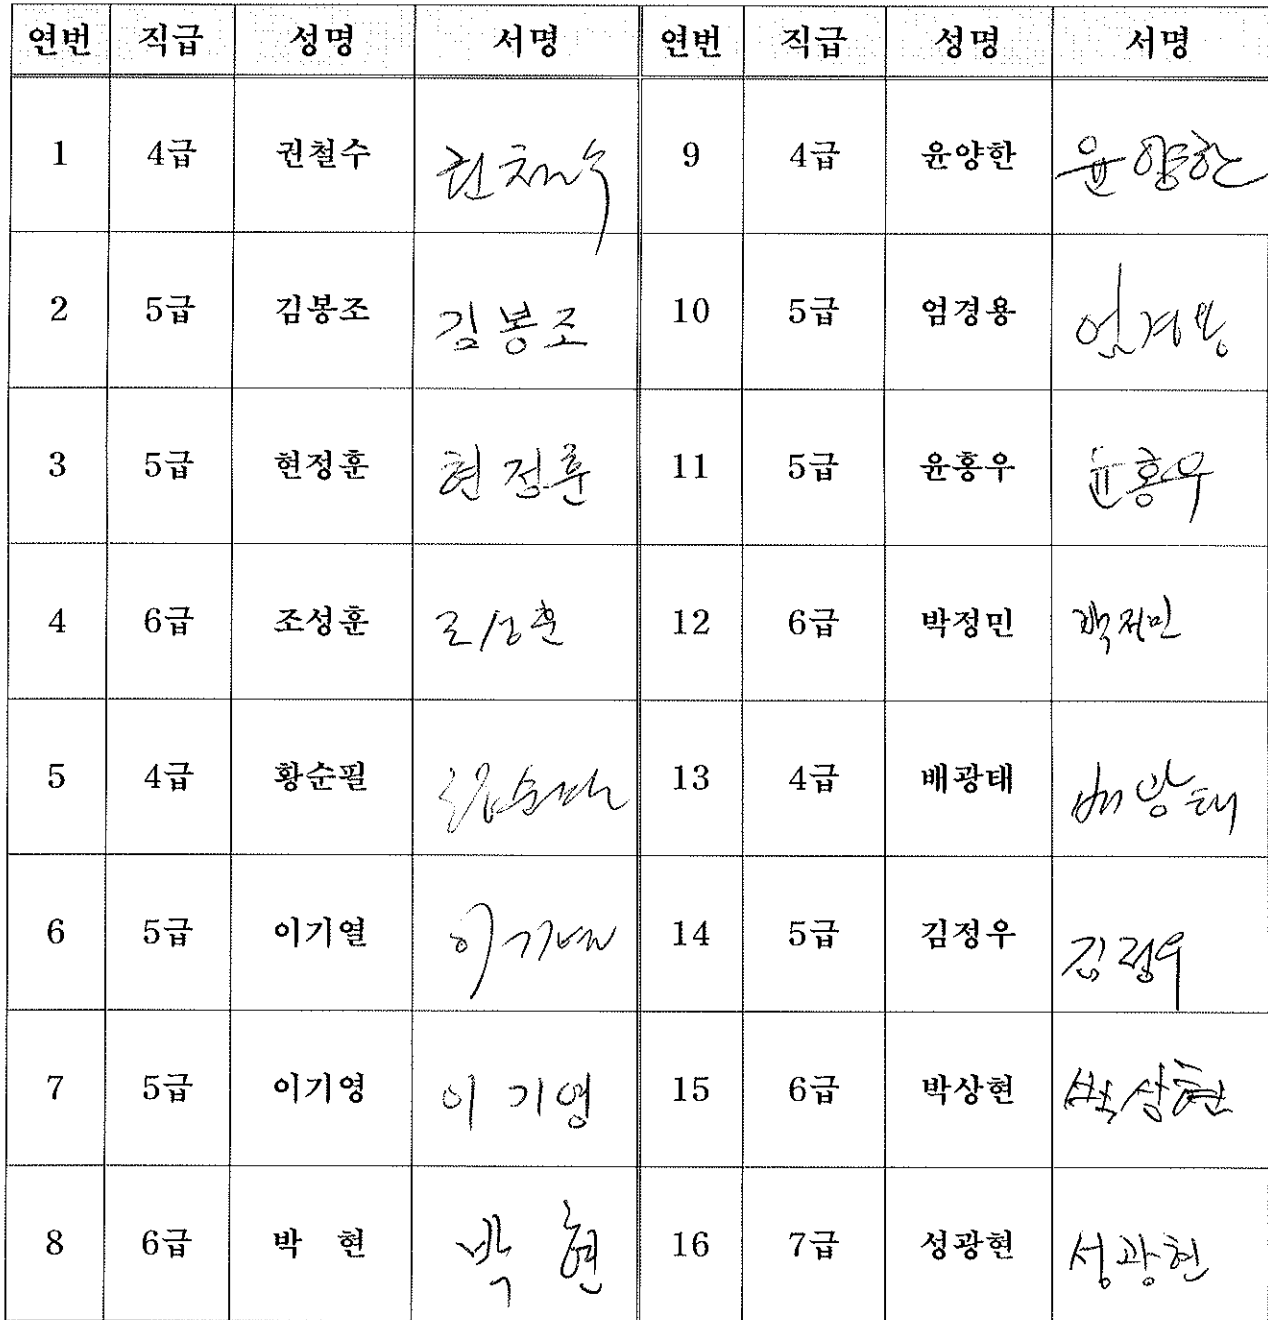 연번 직급 성명 서명 연번 직급 성명 서명
1 4급 권철수 권철수 9 4급 윤양한 윤양한
2 5급 김봉조 김봉조 10 5급 엄경용 엄경용
3 5급 현정훈 현정훈 11 5급 윤홍우 윤홍우
4 6급 조성훈 조성훈 12 6급 박정민 박정민
5 4급 황순필 황순필 13 4급 배광태 배광태
6 5급 이기열 이기열 14 5급 김정우 김정우
7 5급 이기영 이기영 15 6급 박상현 박상현
8 6급 박 현 박 현 16 7급 성광현 성광현